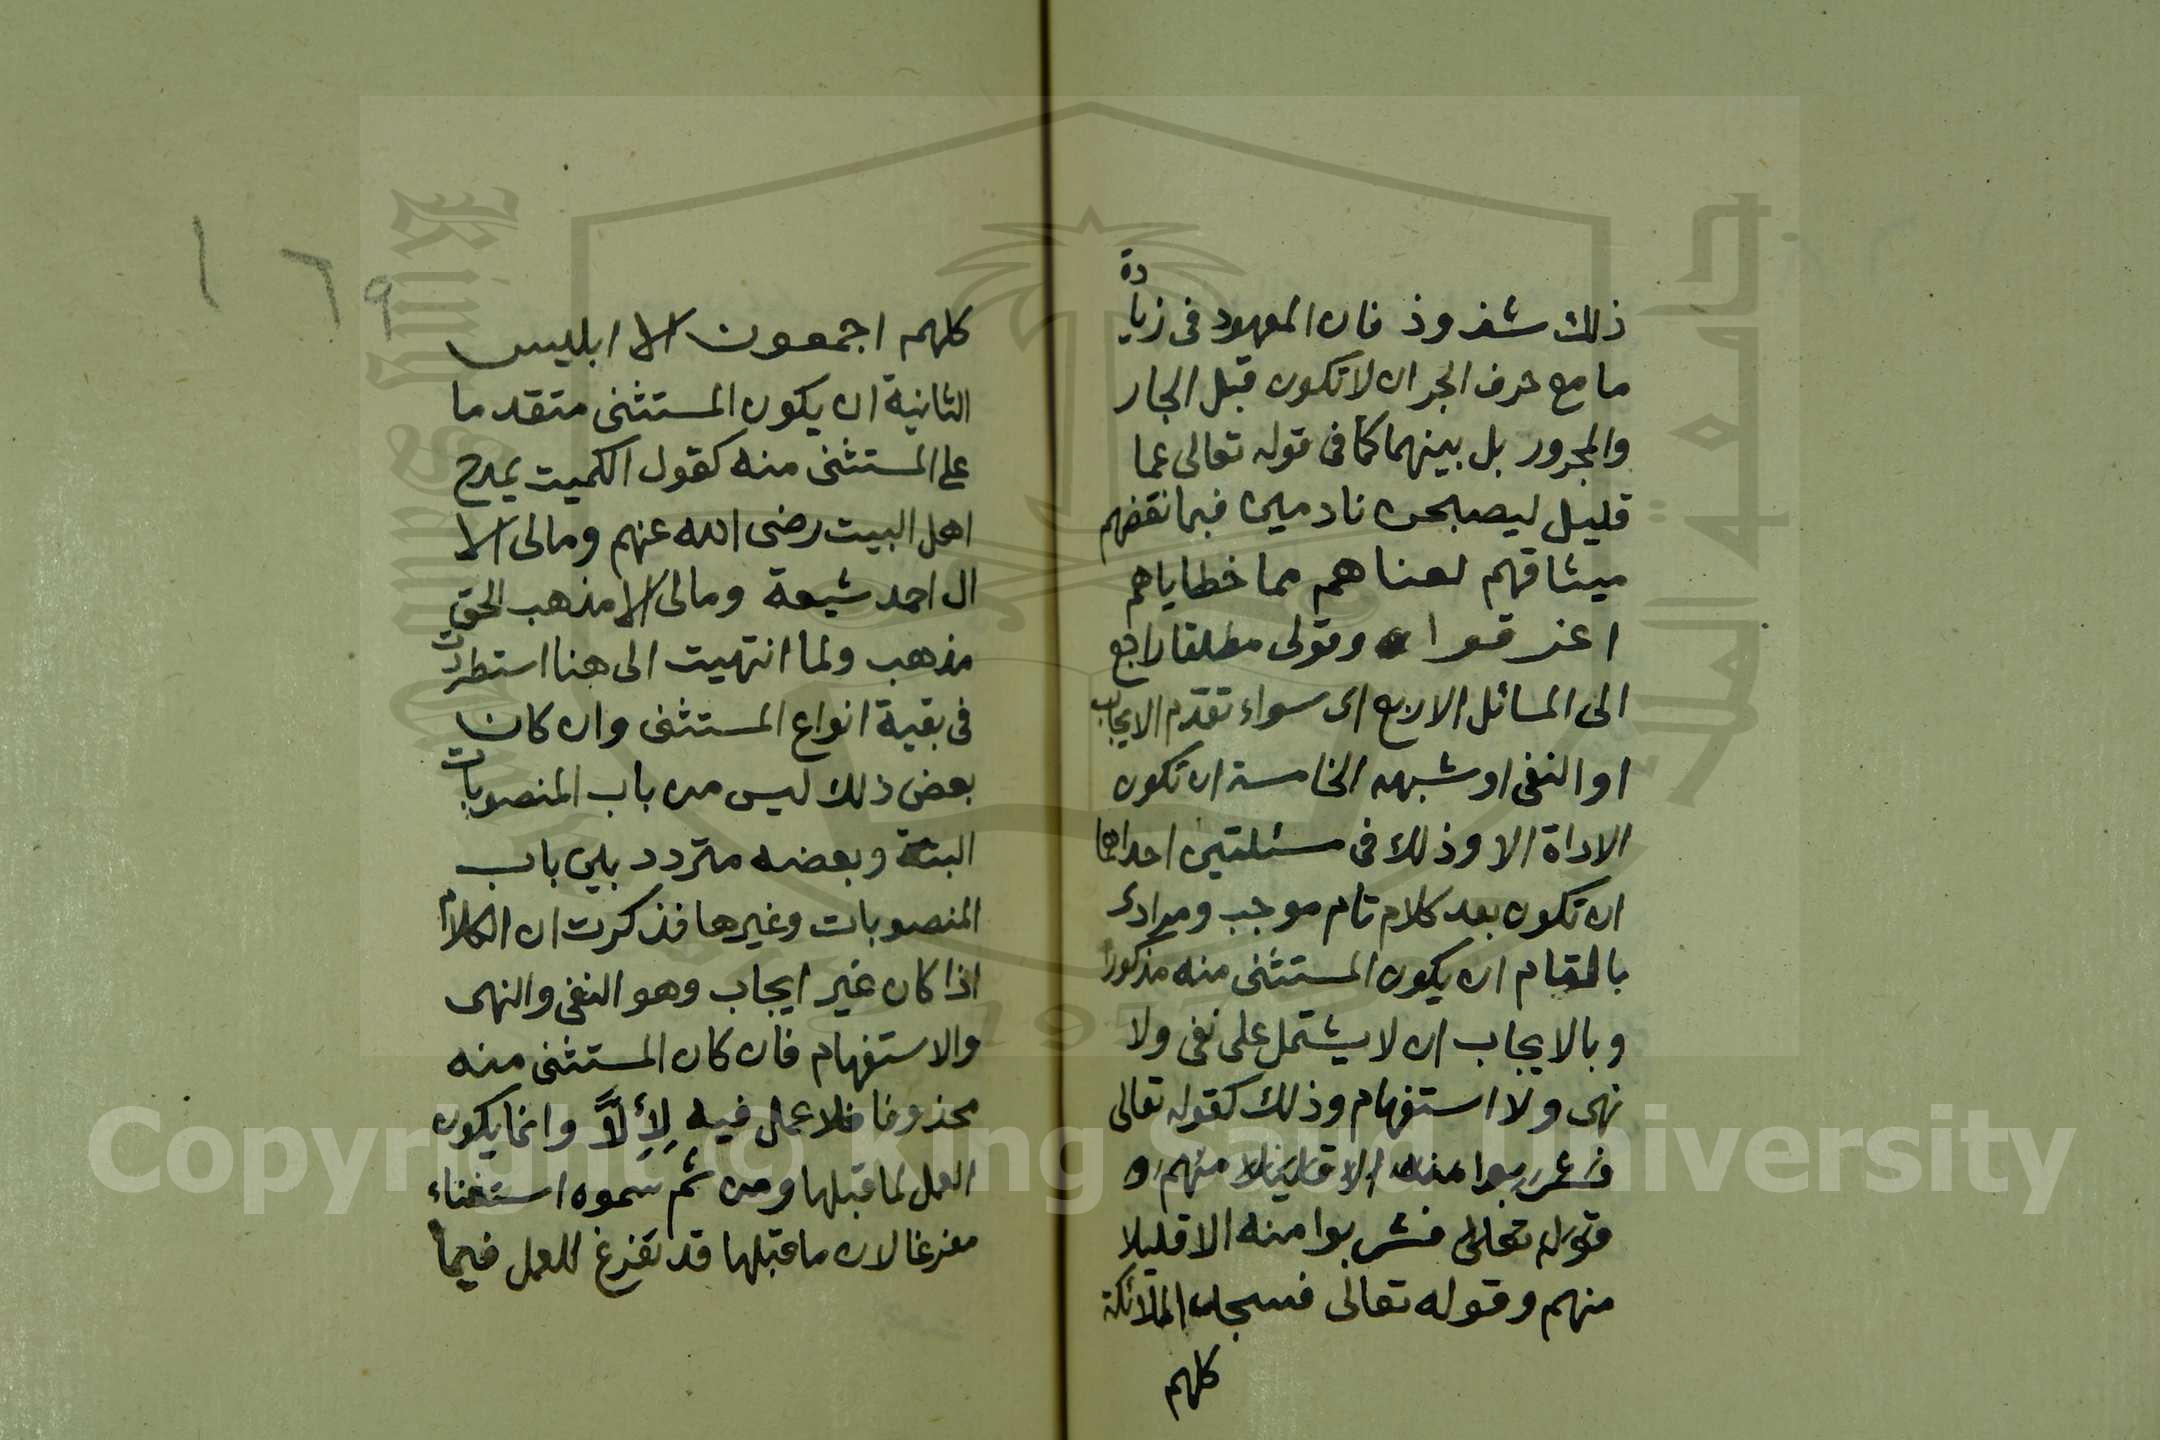 ذلك شذوذ فان المعهود فى زيادة
ما مع حرف الجر ان لا تكون قبل الجار
والمجرور بل بينهما كما فى قوله تعالى عما
قليل ليصبحن نادمين فبما نقضهم
ميثاقهم لعناهم مما خطاياهم
اغرقوا وقولى مطلقا راجع
الى المسائل الاربع اى سواء تقدم الايجاب
او النفى او شبهه الخامسة ان تكون
الاداة الا وذلك فى مسئلتين احداهما
ان تكون بعد كلام تام موجب ومرادى
بالتمام ان يكون المستثنى منه مذكورا
وبالايجاب ان لا يشتمل على نفى ولا
نهى ولا استفهام وذلك كقوله تعالى
فشربوا منه الا قليلا منهم و
قوله تعالى فشربوا منه الا قليلا
منهم وقوله تعالى فسجد الملائكة
كلهم
١٦٩
كلهم اجمعون الا ابليس
الثانية ان يكون المستثنى متقدما
على المستثنى منه كقول الكميت يمدح
اهل البيت رضى الله عنهم ومالى الا
ال احمد شيعة ومالى الا مذهب الحق
مذهب ولما انتهيت الى هنا استطردت
فى بقية انواع المستثنى وان كان
بعض ذلك ليس من باب المنصوبات
البتة وبعضه متردد بين باب
المنصوبات وغيرها فذكرت ان الكلام
اذا كان غير ايجاب وهو النفى والنهى
والاستفهام فان كان المستثنى منه
محذوفا فلا عمل فيه لِأَلَّا وانما يكون
العمل لما قبلها ومن ثم سموه استثناء
مفرغا لان ما قبلها قد تفرغ للعمل فيما
Copyright © King Saud University
جامعة الملك سعود
King Saud University
1957